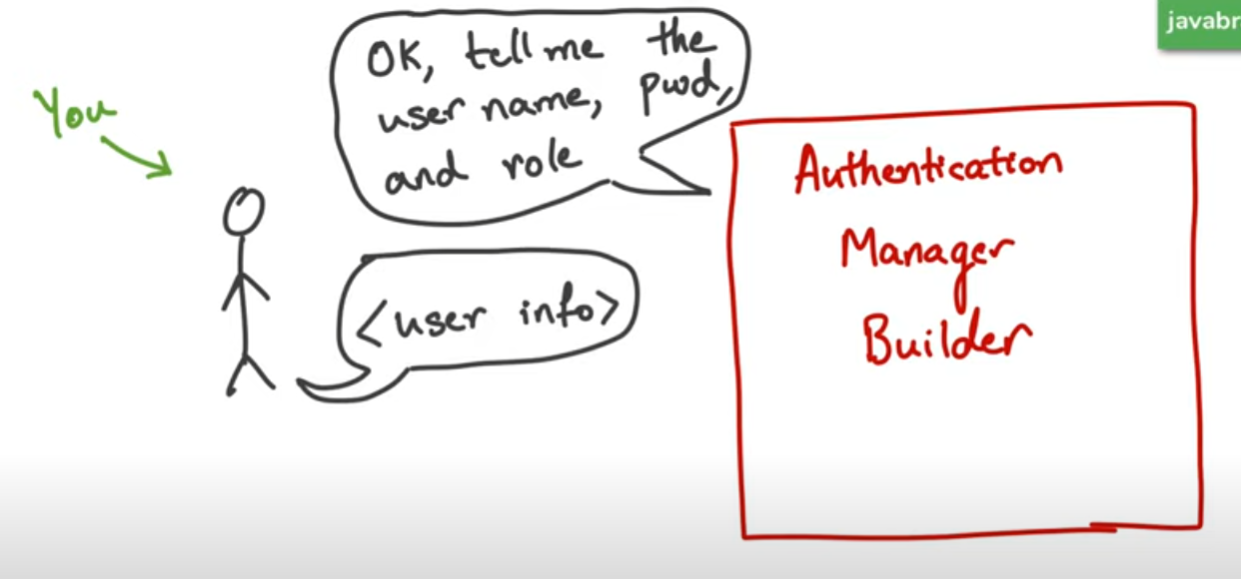 javabr
You
OK, tell me the
user name, pwd,
and role
<user info>
Authentication
Manager
Builder